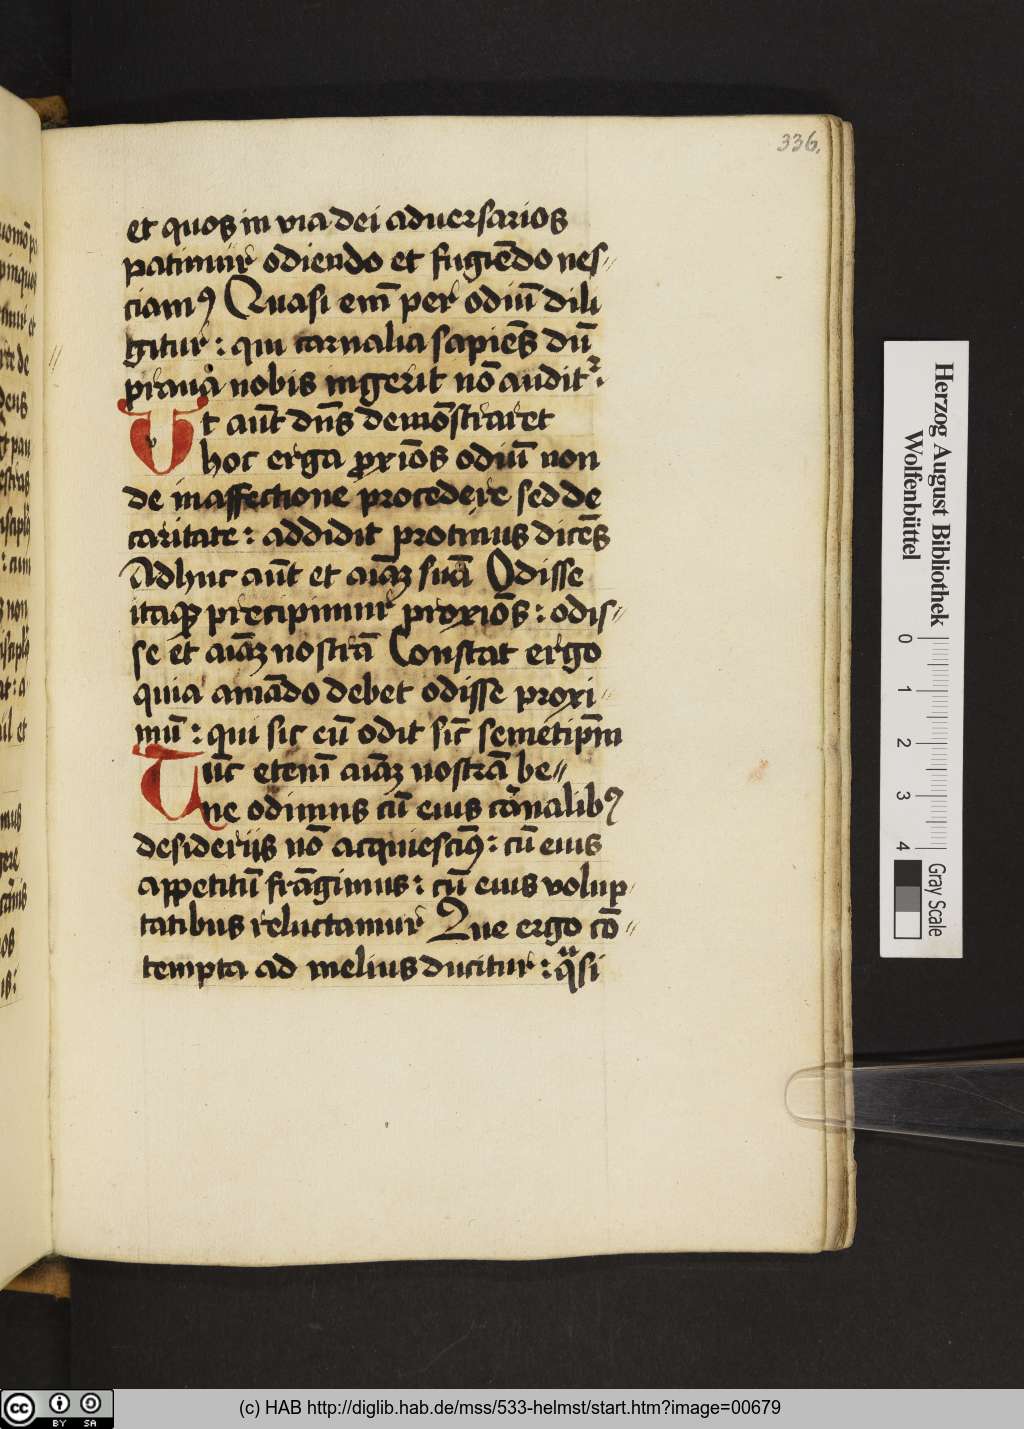 336.
et quos in via dei adversarios
patimur odiendo et fugiēdo nes-
ciamꝰ Quasi em̄ per odiū dili
gitur : qui carnalia sapiēs dū
praua nobis ingerit nō auditr.
Ut aūt dn̄s demōstraret
hoc erga ꝓxīos odiū non
de inaffectione procedere sed de
caritate : addidit protinus dicēs
Adhuc aūt et aīaꝫ suā Odisse
itaqꝫ precipimur proxīos : odis-
se et aīaꝫ nostrā Constat ergo
quia amādo debet odisse proxi-
mū : qui sic eū odit sic̄ semetip̄m
Tūc etenī aīaꝫ nostrā be-
ne odimus cū eius carnalibꝰ
desideriis nō acquiescimꝰ : cū eius
appetitū frāgimus : cū eius volup-
tatibus reluctamur Que ergo cō-
tempta ad melius ducitur : qᵃsi
Herzog August Bibliothek
Wolfenbüttel
0 1 2 3 4
Gray Scale
(c) HAB http://diglib.hab.de/mss/533-helmst/start.htm?image=00679
cc BY SA